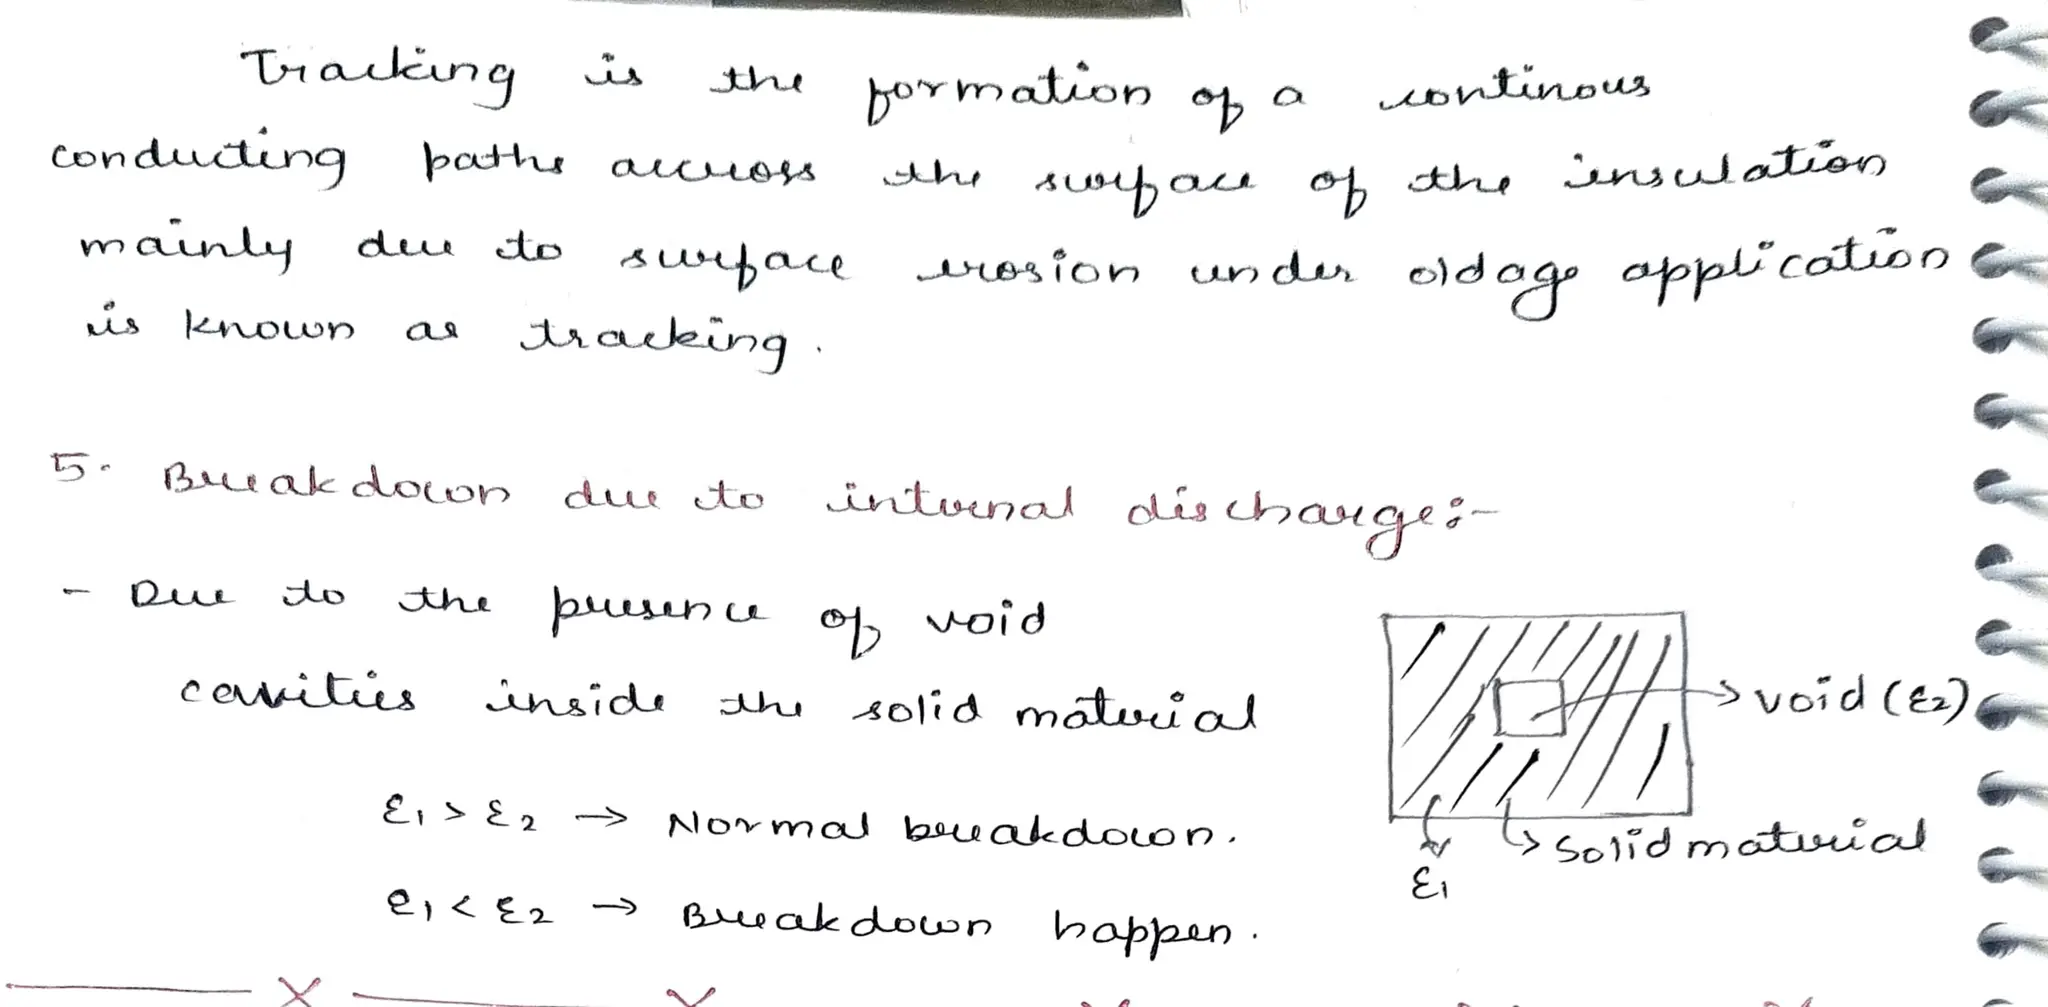 Tracking is the formation of a continous
conducting paths accross the surface of the insulation
mainly due to surface erosion under oldage application
is known as tracking.
5. Breakdown due to internal discharge:-
- Due to the presence of void
cavities inside the solid material
ε1 > ε2 → Normal breakdown.
e1 < ε2 → Breakdown happen.
→ void (ε2)
→ solid material
ε1